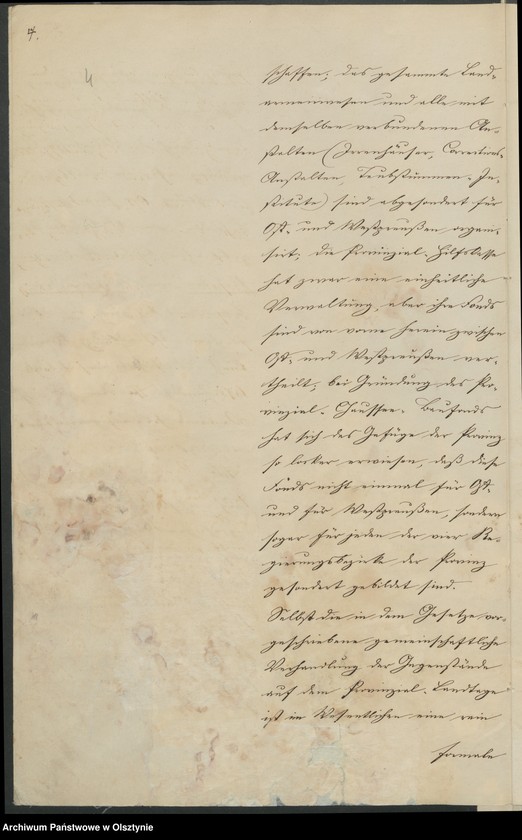 4.
4
schaffen; das gesammte Land-
armenwesen und alle mit
demselben verbundenen An-
stalten (Irrenhäuser, Corrections-
Anstalten, Taubstummen-In-
stitute) sind abgesondert für
Ost- und Westpreußen organi-
sirt; die Provinzial-Hilfskasse
hat zwar eine einheitliche
Verwaltung, aber ihre Fonds
sind von vorne herein zwischen
Ost- und Westpreußen ver-
theilt; bei Gründung des Pro-
vinzial-Chaussee-Baufonds
hat sich das Gefüge der Provinz
so locker erwiesen, daß diese
Fonds nicht einmal für Ost-
und für Westpreußen, sondern
sogar für jeden der vier Re-
gierungsbezirke der Provinz
gesondert gebildet sind.
Selbst die in dem Gesetze vor-
geschriebene gemeinschaftliche
Verhandlung der Gegenstände
auf dem Provinzial-Landtage
ist im Wesentlichen eine rein
formale
Archiwum Państwowe w Olsztynie